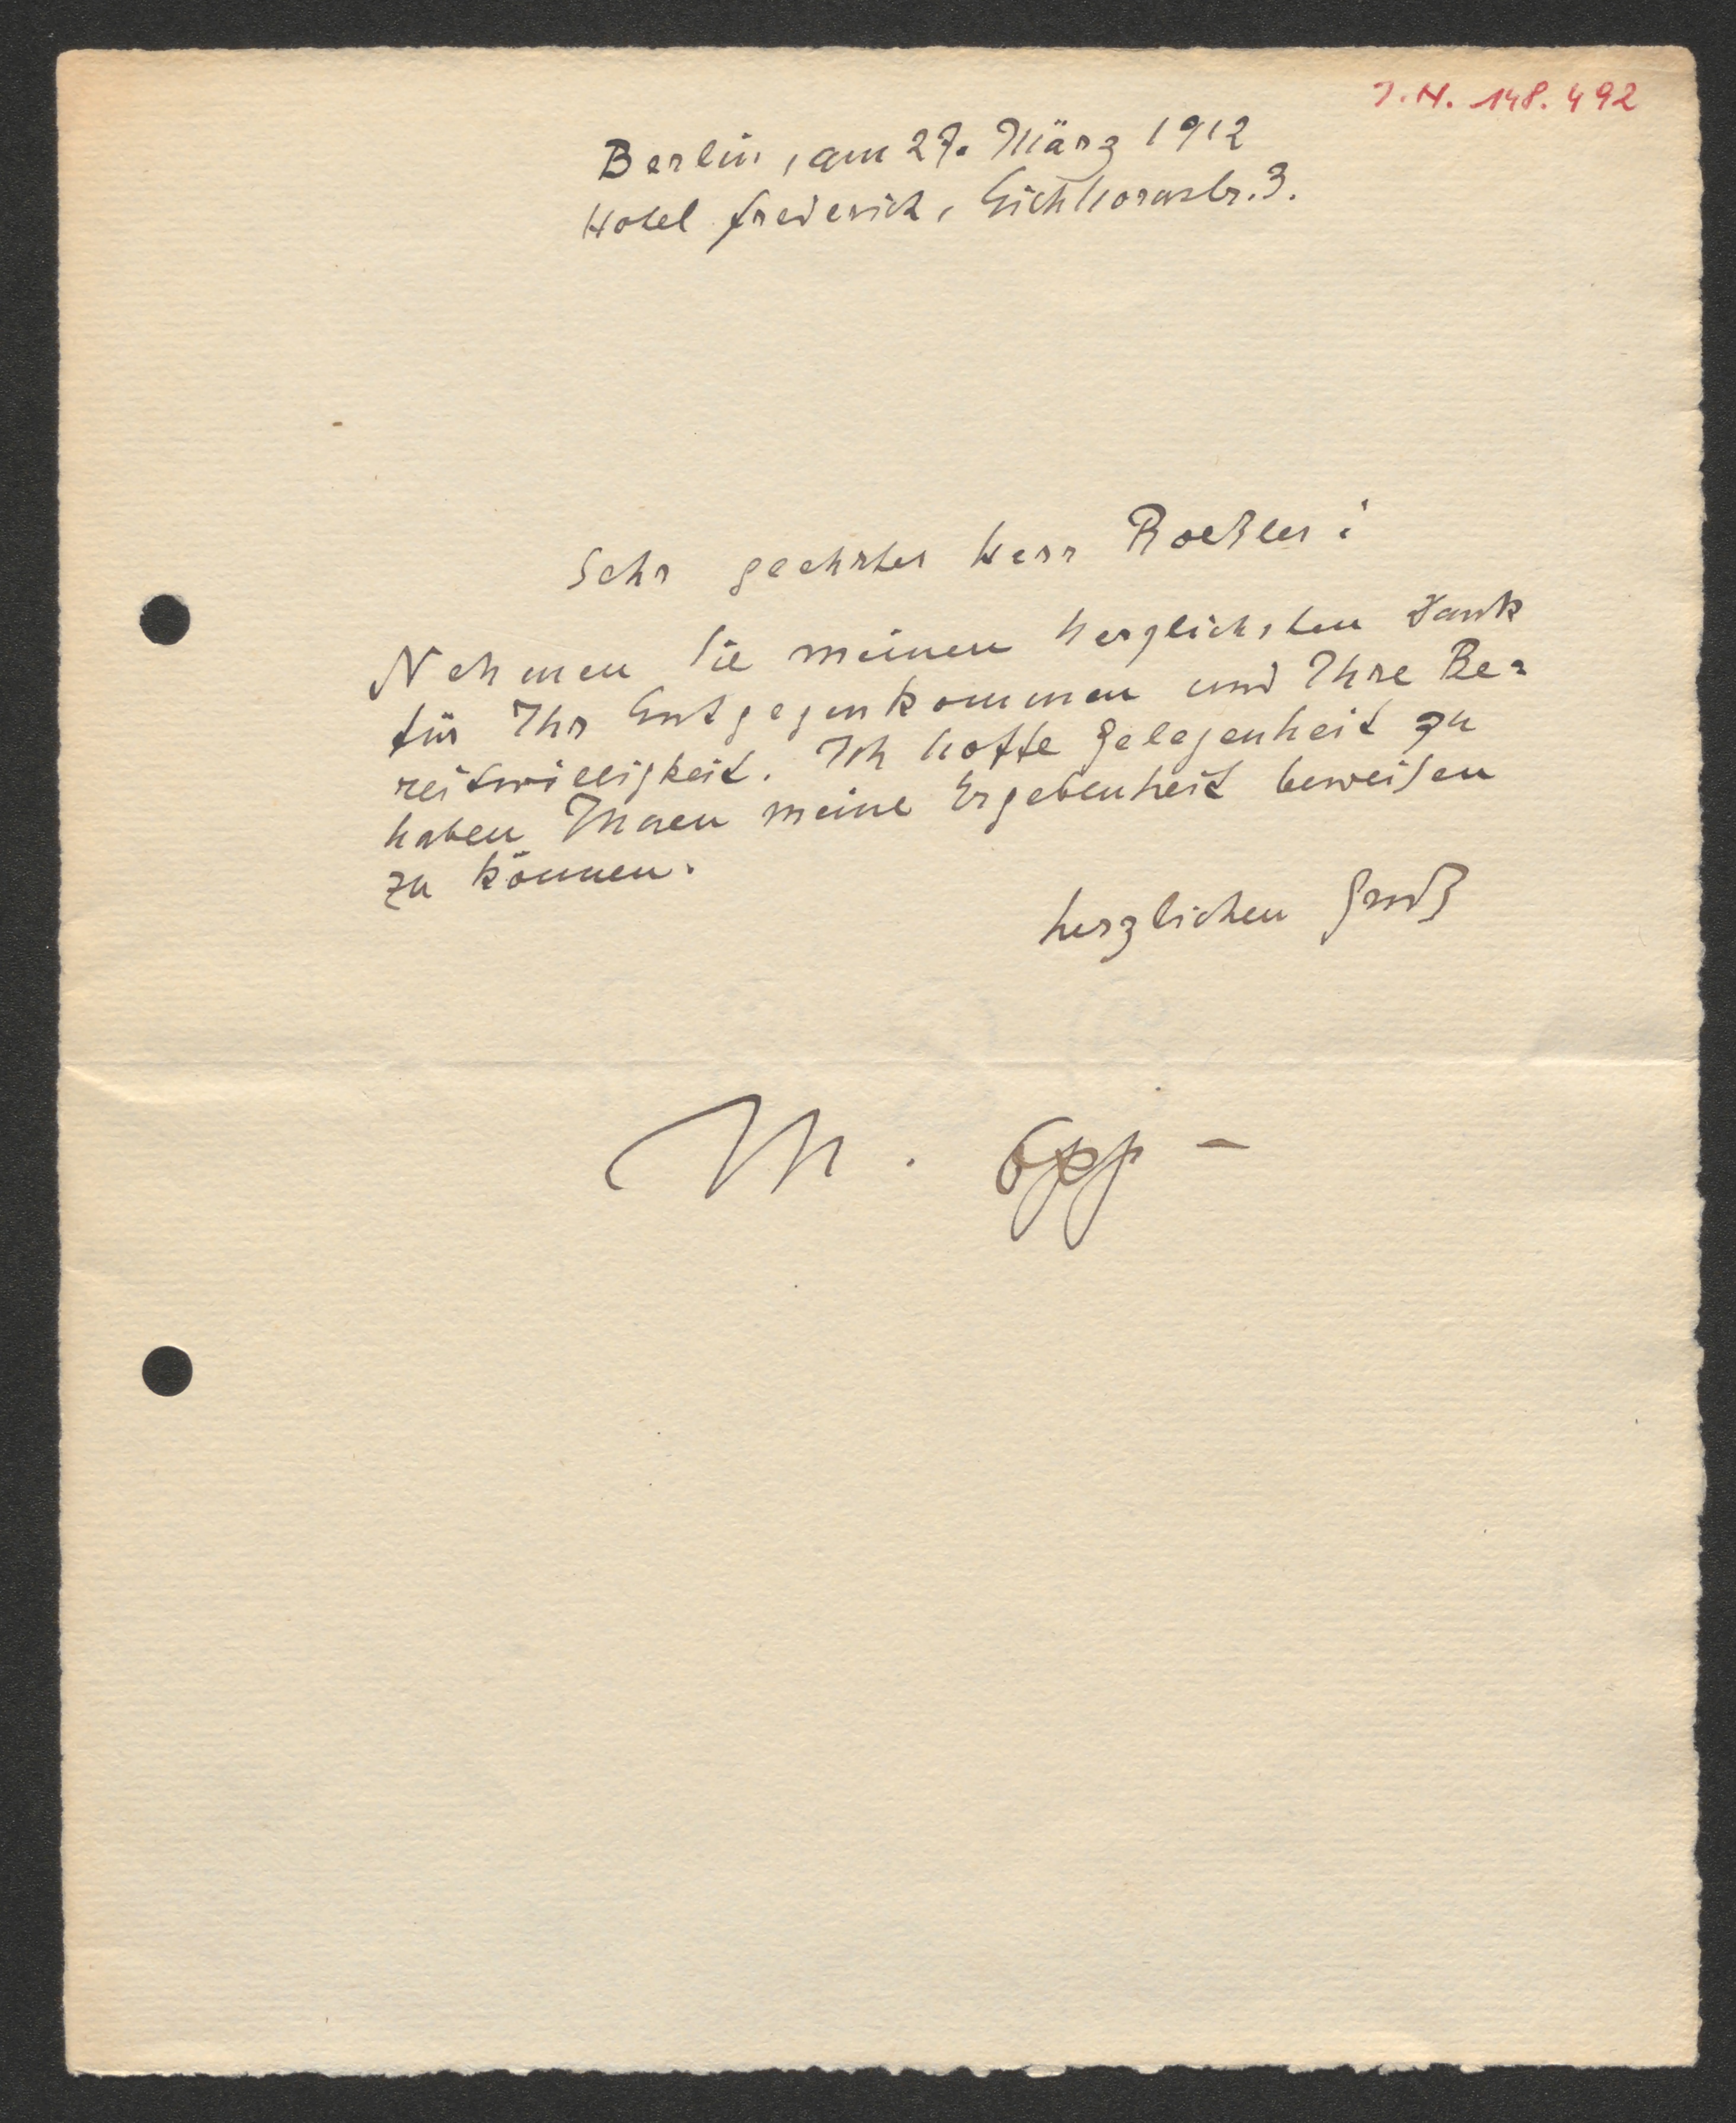 J.N. 148.492
Berlin, am 27. März 1912
Hotel Frederich, Eichhornstr. 3.
Sehr geehrter Herr Roeßler!
Nehmen Sie meinen herzlichsten Dank
für Ihr Entgegenkommen und Ihre Be=
reitwilligkeit. Ich hoffe Gelegenheit zu
haben Ihnen meine Ergebenheit beweisen
zu können.
herzlichen Gruß
M. Opp –